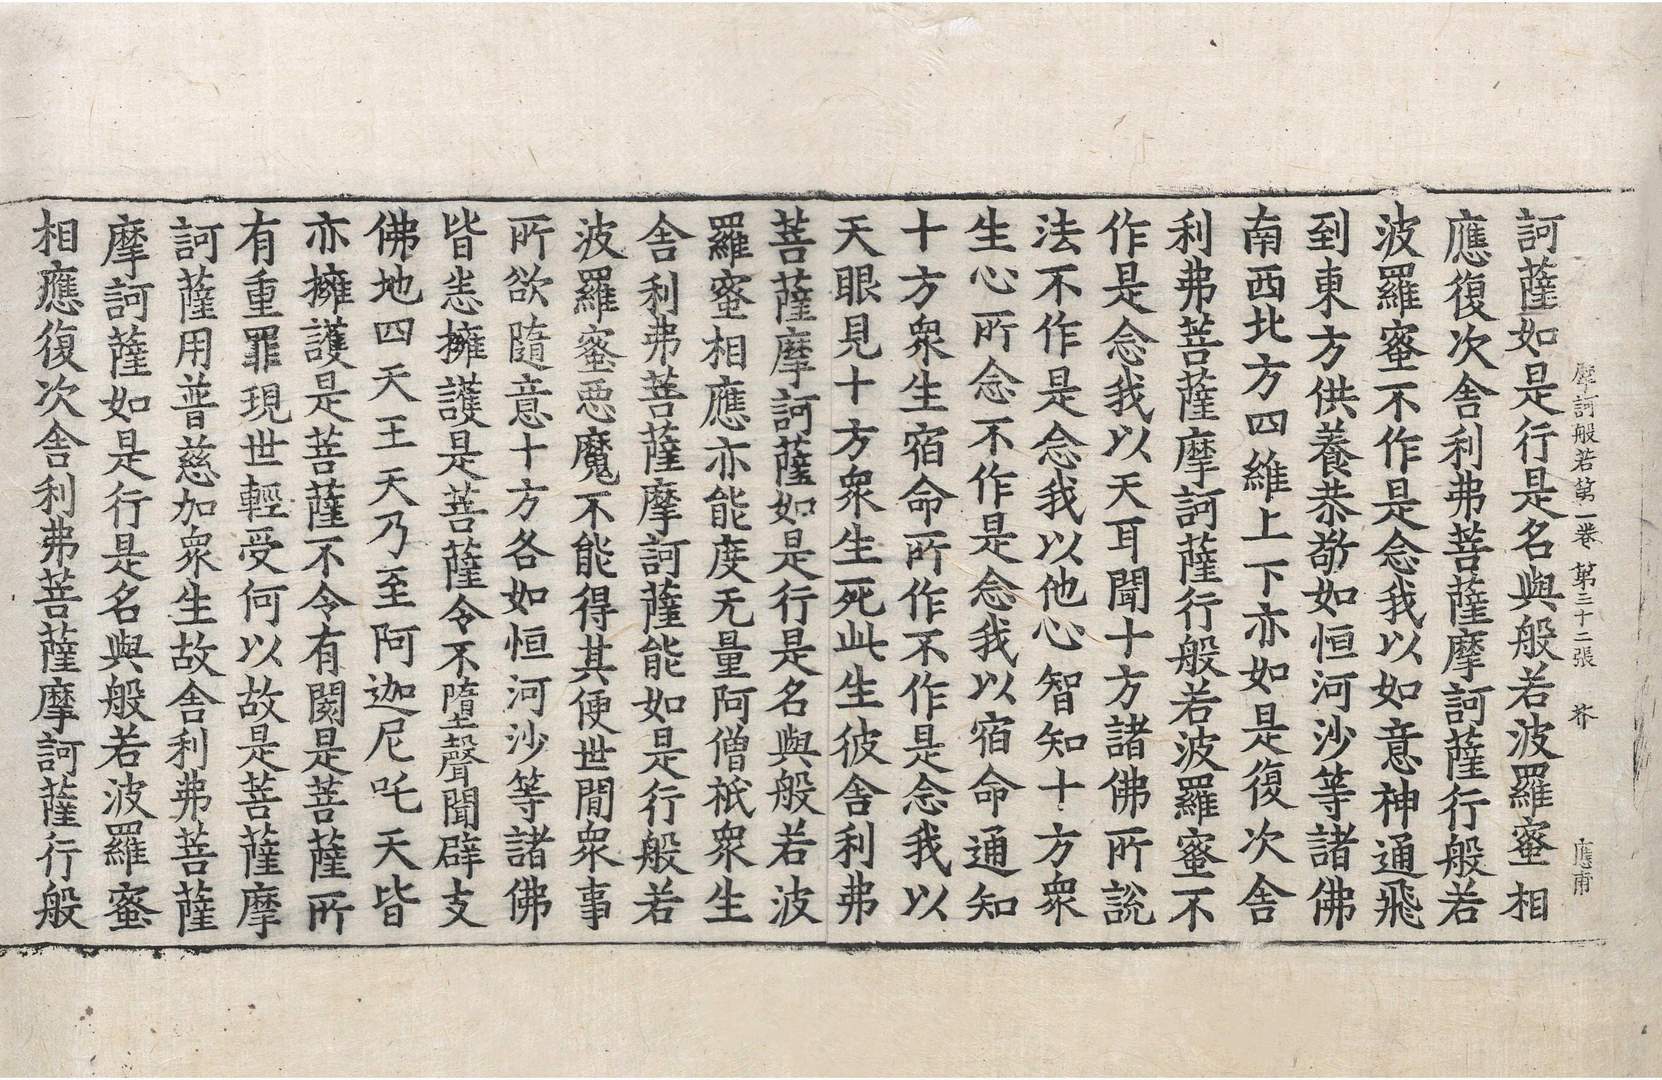 摩訶般若第一卷 第三十二張 芥
應甫
訶薩如是行是名與般若波羅蜜相
應復次舍利弗菩薩摩訶薩行般若
波羅蜜不作是念我以如意神通飛
到東方供養恭敬如恒河沙等諸佛
南西北方四維上下亦如是復次舍
利弗菩薩摩訶薩行般若波羅蜜不
作是念我以天耳聞十方諸佛所說
法不作是念我以他心智知十方衆
生心所念不作是念我以宿命通知
十方衆生宿命所作不作是念我以
天眼見十方衆生死此生彼舍利弗
菩薩摩訶薩如是行是名與般若波
羅蜜相應亦能度无量阿僧祇衆生
舍利弗菩薩摩訶薩能如是行般若
波羅蜜惡魔不能得其便世間衆事
所欲隨意十方各如恒河沙等諸佛
皆悉擁護是菩薩令不墮聲聞辟支
佛地四天王天乃至阿迦尼吒天皆
亦擁護是菩薩不令有閡是菩薩所
有重罪現世輕受何以故是菩薩摩
訶薩用普慈加衆生故舍利弗菩薩
摩訶薩如是行是名與般若波羅蜜
相應復次舍利弗菩薩摩訶薩行般